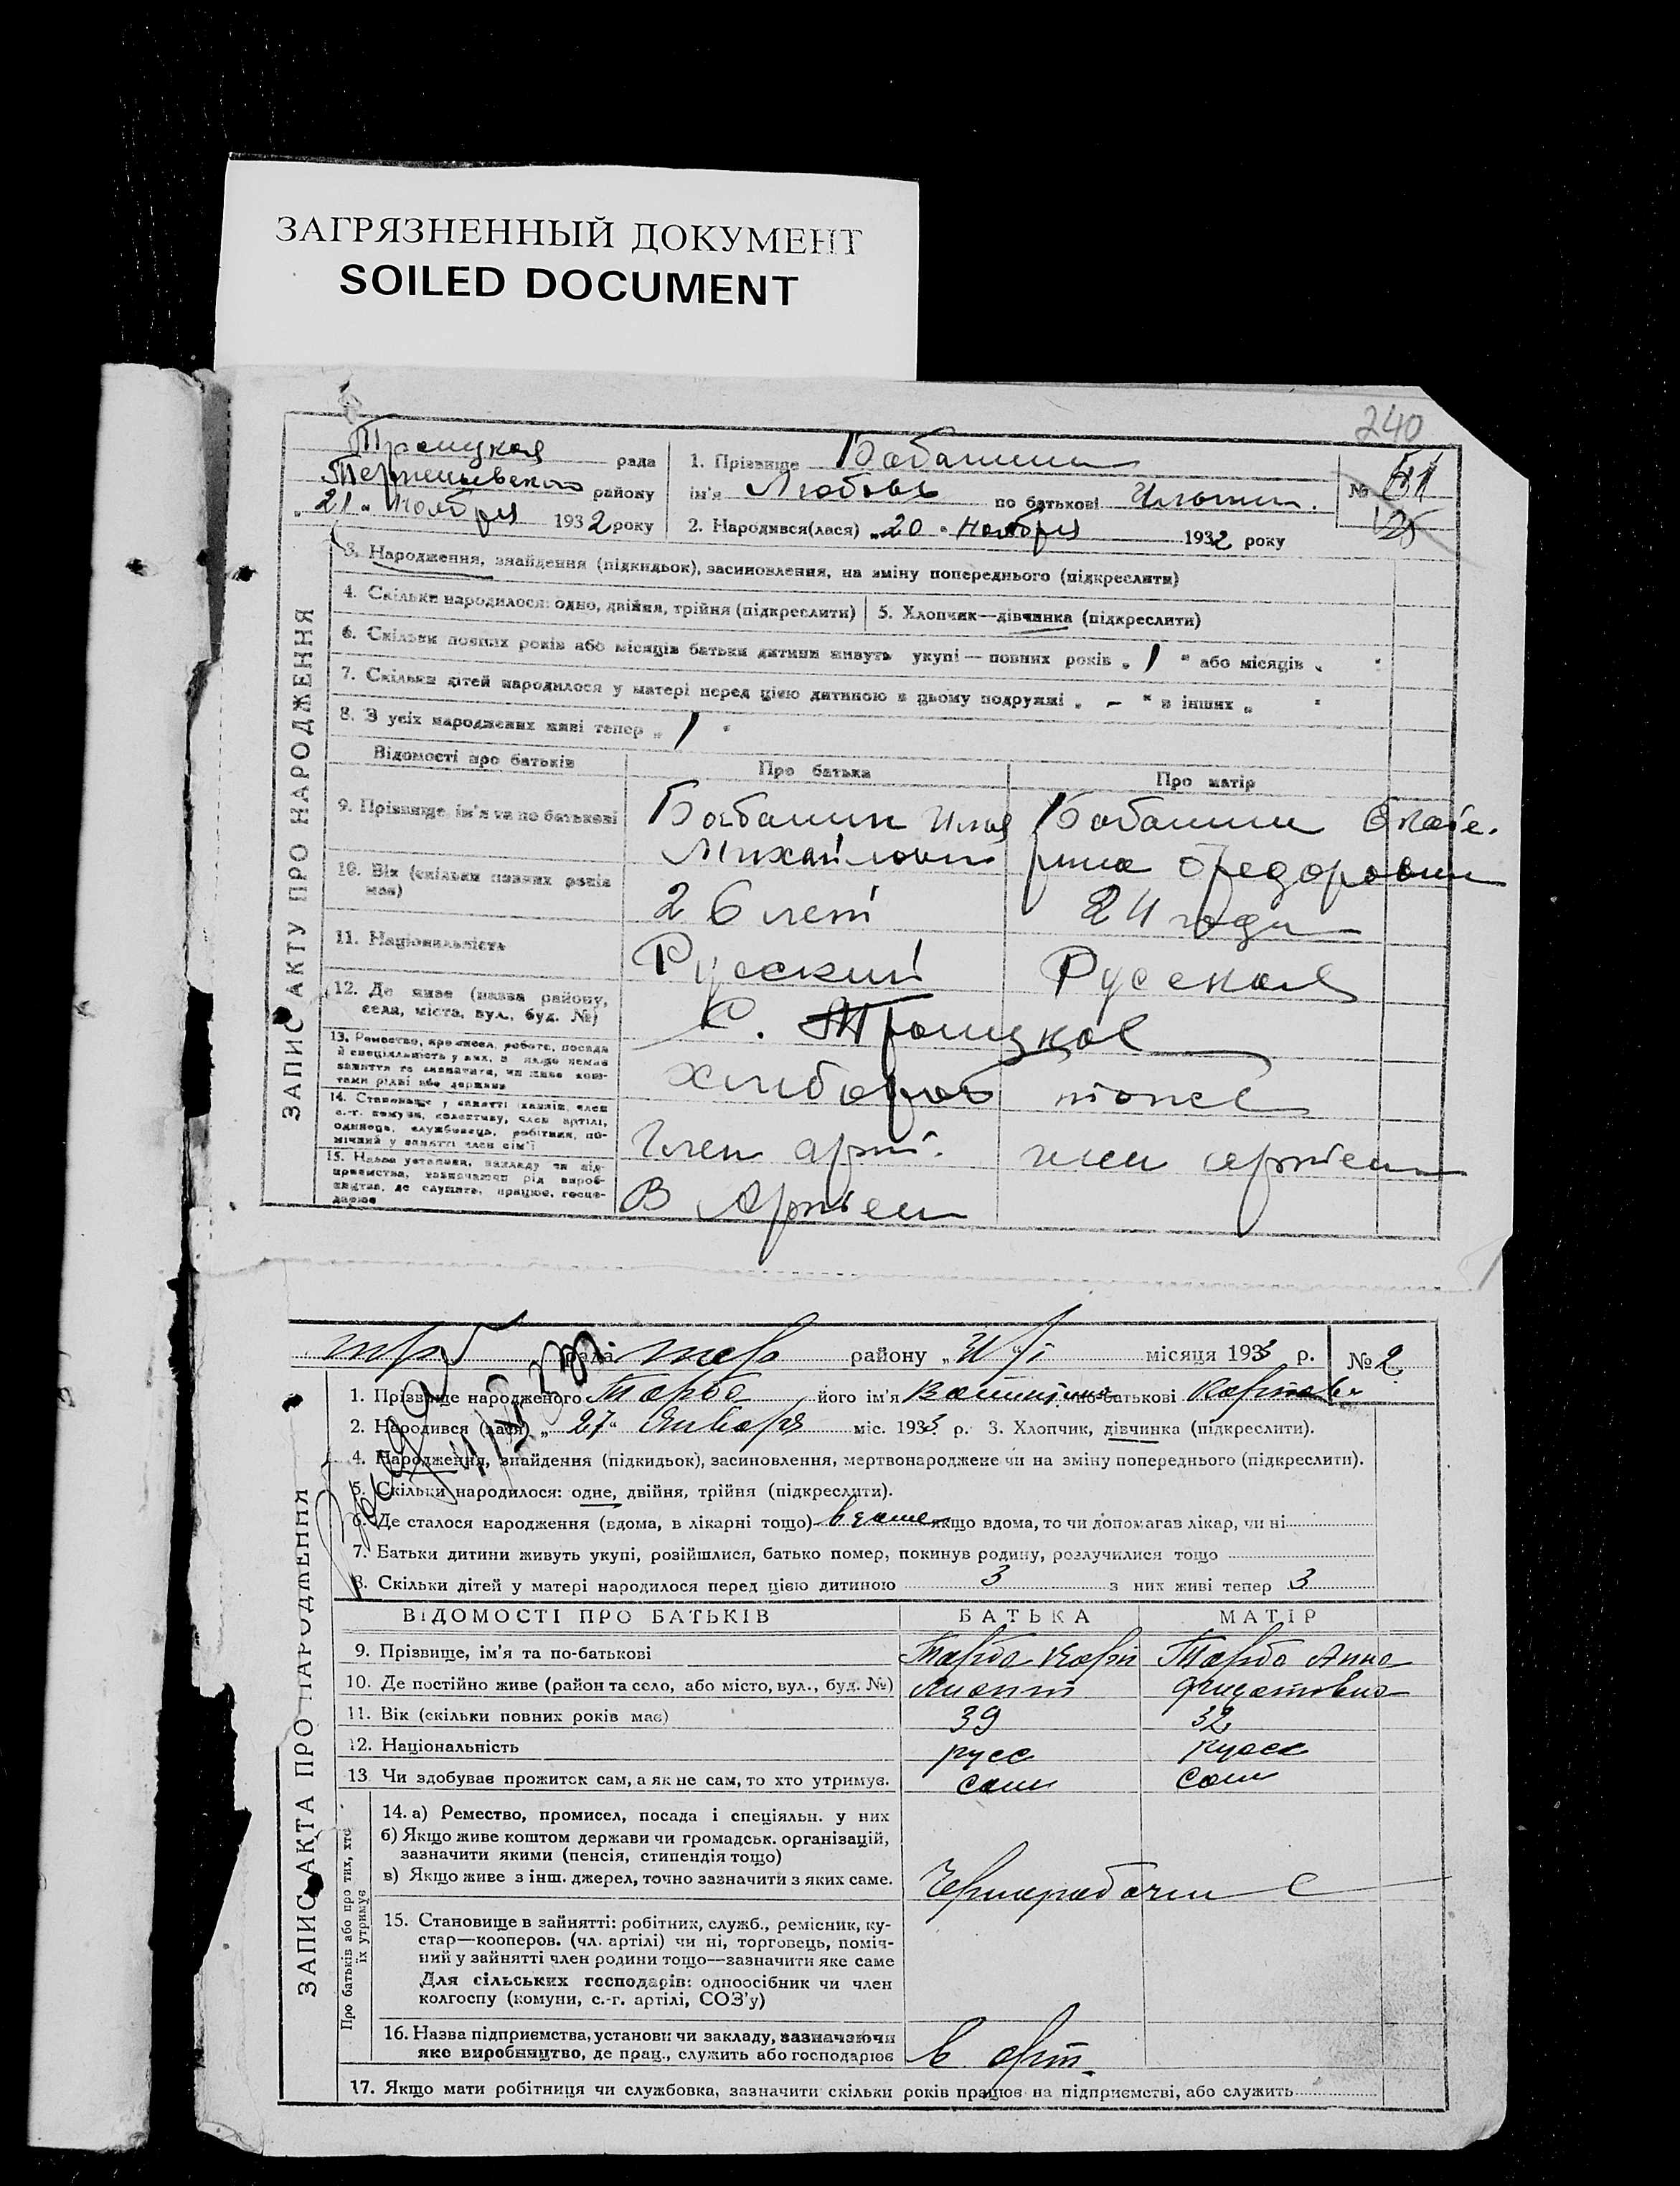 ЗАГРЯЗНЕННЫЙ ДОКУМЕНТ
SOILED DOCUMENT
240
Троицкая рада
району
„21“ Ноября 1932 року
1. Прізвище Бабанина
ім'я Любовь по батькові Ильин.
2. Народився(лася) „20“ Ноября 1932 року
№
ЗАПИС АКТУ ПРО НАРОДЖЕННЯ
3. Народження, знайдення (підкидьок), засиновлення, на зміну попереднього (підкреслити)
4. Скільки народилося: одно, двійня, трійня (підкреслити)
5. Хлопчик—дівчинка (підкреслити)
6. Скільки повних років або місяців батьки дитини живуть укупі — повних років „1“ або місяців „ “
7. Скільки дітей народилося у матері перед цією дитиною в цьому подружжі „–“ в інших „ “
8. З усіх народжених живі тепер „1“
Відомості про батьків
Про батька
Про матір
9. Прізвище ім'я та по батькові
Бабанин Илья
Михайлович
Бабанина Екате-
рина Федоровна
10. Вік (скільки повних років має)
26 лет
24 года
11. Національність
Русский
Русская
12. Де живе (назва району,
села, міста, вул., буд. №)
С. Троицкое
13. Ремество, промисел, робота, посада
хлибороб
тоже
14. Становище у занятті
Член арт.
член артели
15. Назва установи, закладу чи під-
приємства, зазначаючи рід вироб-
ництва, де служить, працює, госпо-
дарює
В Артели
рада району місяця 1933 р.
№ 2
ЗАПИС АКТА ПРО НАРОДЖЕННЯ
1. Прізвище народженого його ім'я по-батькові
2. Народився (лася) „27“ Января міс. 1933 р. 3. Хлопчик, дівчинка (підкреслити).
4. Народження, знайдення (підкидьок), засиновлення, мертвонароджене чи на зміну попереднього (підкреслити).
5. Скільки народилося: одне, двійня, трійня (підкреслити).
6. Де сталося народження (вдома, в лікарні тощо) в доме якщо вдома, то чи допомагав лікар, чи ні
7. Батьки дитини живуть укупі, розійшлися, батько помер, покинув родину, розлучилися тощо
8. Скільки дітей у матері народилося перед цією дитиною 3 з них живі тепер 3
ВІДОМОСТІ ПРО БАТЬКІВ
БАТЬКА
МАТІР
9. Прізвище, ім'я та по-батькові
Анна
10. Де постійно живе (район та село, або місто, вул., буд. №)
11. Вік (скільки повних років має)
39
32
12. Національність
русс
русск
13. Чи здобуває прожиток сам, а як не сам, то хто утримує.
сам
сам
Про батьків або про тих, хто
їх утримує
14. а) Ремество, промисел, посада і спеціяльн. у них
б) Якщо живе коштом держави чи громадськ. організацій,
зазначити якими (пенсія, стипендія тощо)
в) Якщо живе з інш. джерел, точно зазначити з яких саме.
Чернорабочий
15. Становище в зайнятті: робітник, служб., ремісник, ку-
стар—кооперов. (чл. артілі) чи ні, торговець, поміч-
ний у зайнятті член родини тощо—зазначити яке саме
Для сільських господарів: одноосібник чи член
колгоспу (комуни, с.-г. артілі, СОЗ'у)
16. Назва підприємства, установи чи закладу, зазначаючи
яке виробництво, де прац., служить або господарює
в арт.
17. Якщо мати робітниця чи службовка, зазначити скільки років працює на підприємстві, або служить